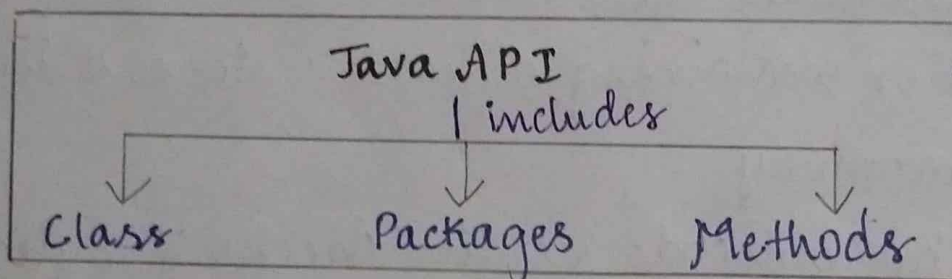 Java API
includes
Class Packages Methods